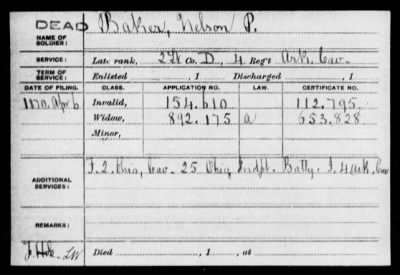 DEAD
NAME OF SOLDIER: Baker, Nelson P.
SERVICE: Late rank, 2 Lt Co. D, 4 Reg't Ark. Cav.
TERM OF SERVICE: Enlisted , 1 Discharged , 1
DATE OF FILING. CLASS. APPLICATION NO. LAW. CERTIFICATE NO.
1870, Apr 6 Invalid, 154.610 112.795
Widow, 892.175 a 653.828
Minor,
ADDITIONAL SERVICES: F. 2. Ohio, Cav. 25 Ohio Indpt. Batty. I. 4 Ark. Cav
REMARKS:
Died , 1 , at